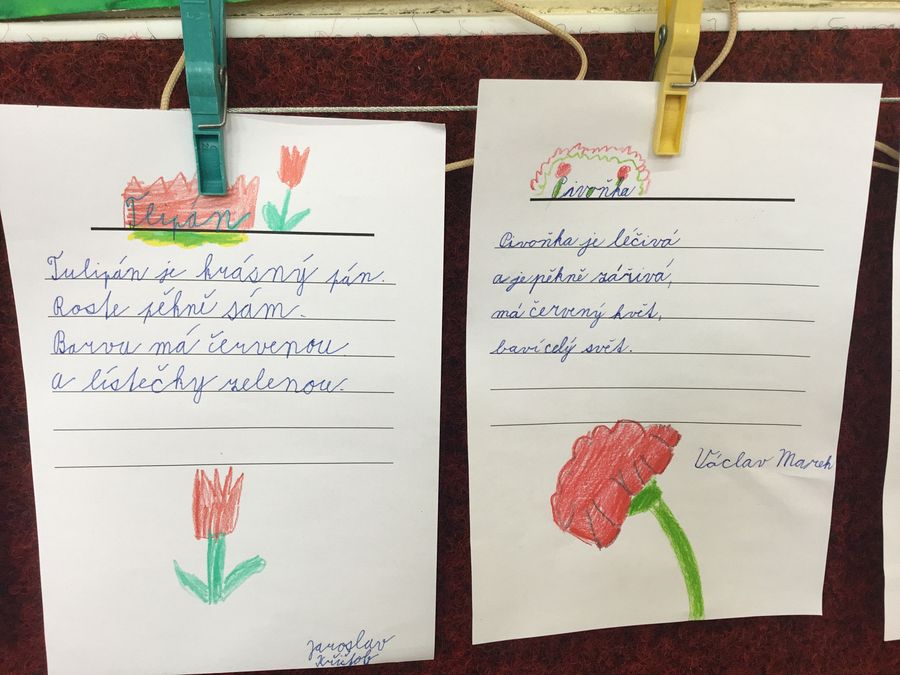 Tlipán
Tulipán je krásný pán.
Roste pěkně sám.
Barvu má červenou
a lístečky zelenou.
Jaroslav
Kryštof
Pivoňka
Pivoňka je léčivá
a je pěkně zářivá,
má červený květ,
baví celý svět.
Václav Marek